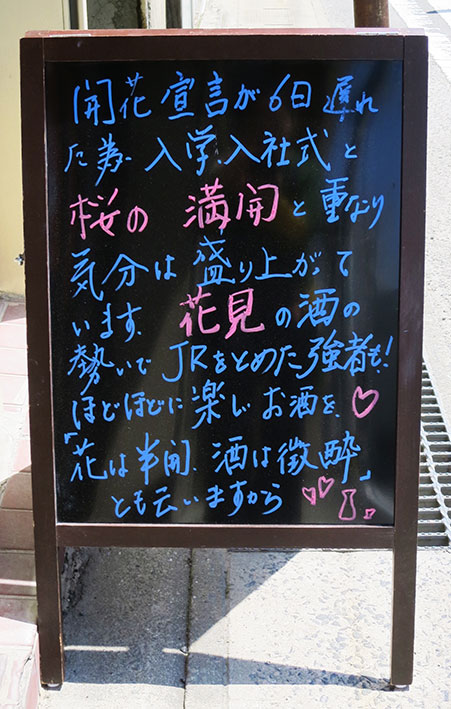 開花宣言が6日遅れ
た為 入学、入社式と
桜の 満開と重なり
気分は盛り上がって
います。花見の酒の
勢いでJRをとめた強者も!
ほどほどに楽しお酒を、♡
「花は半開、酒は微酔」
とも云いますから